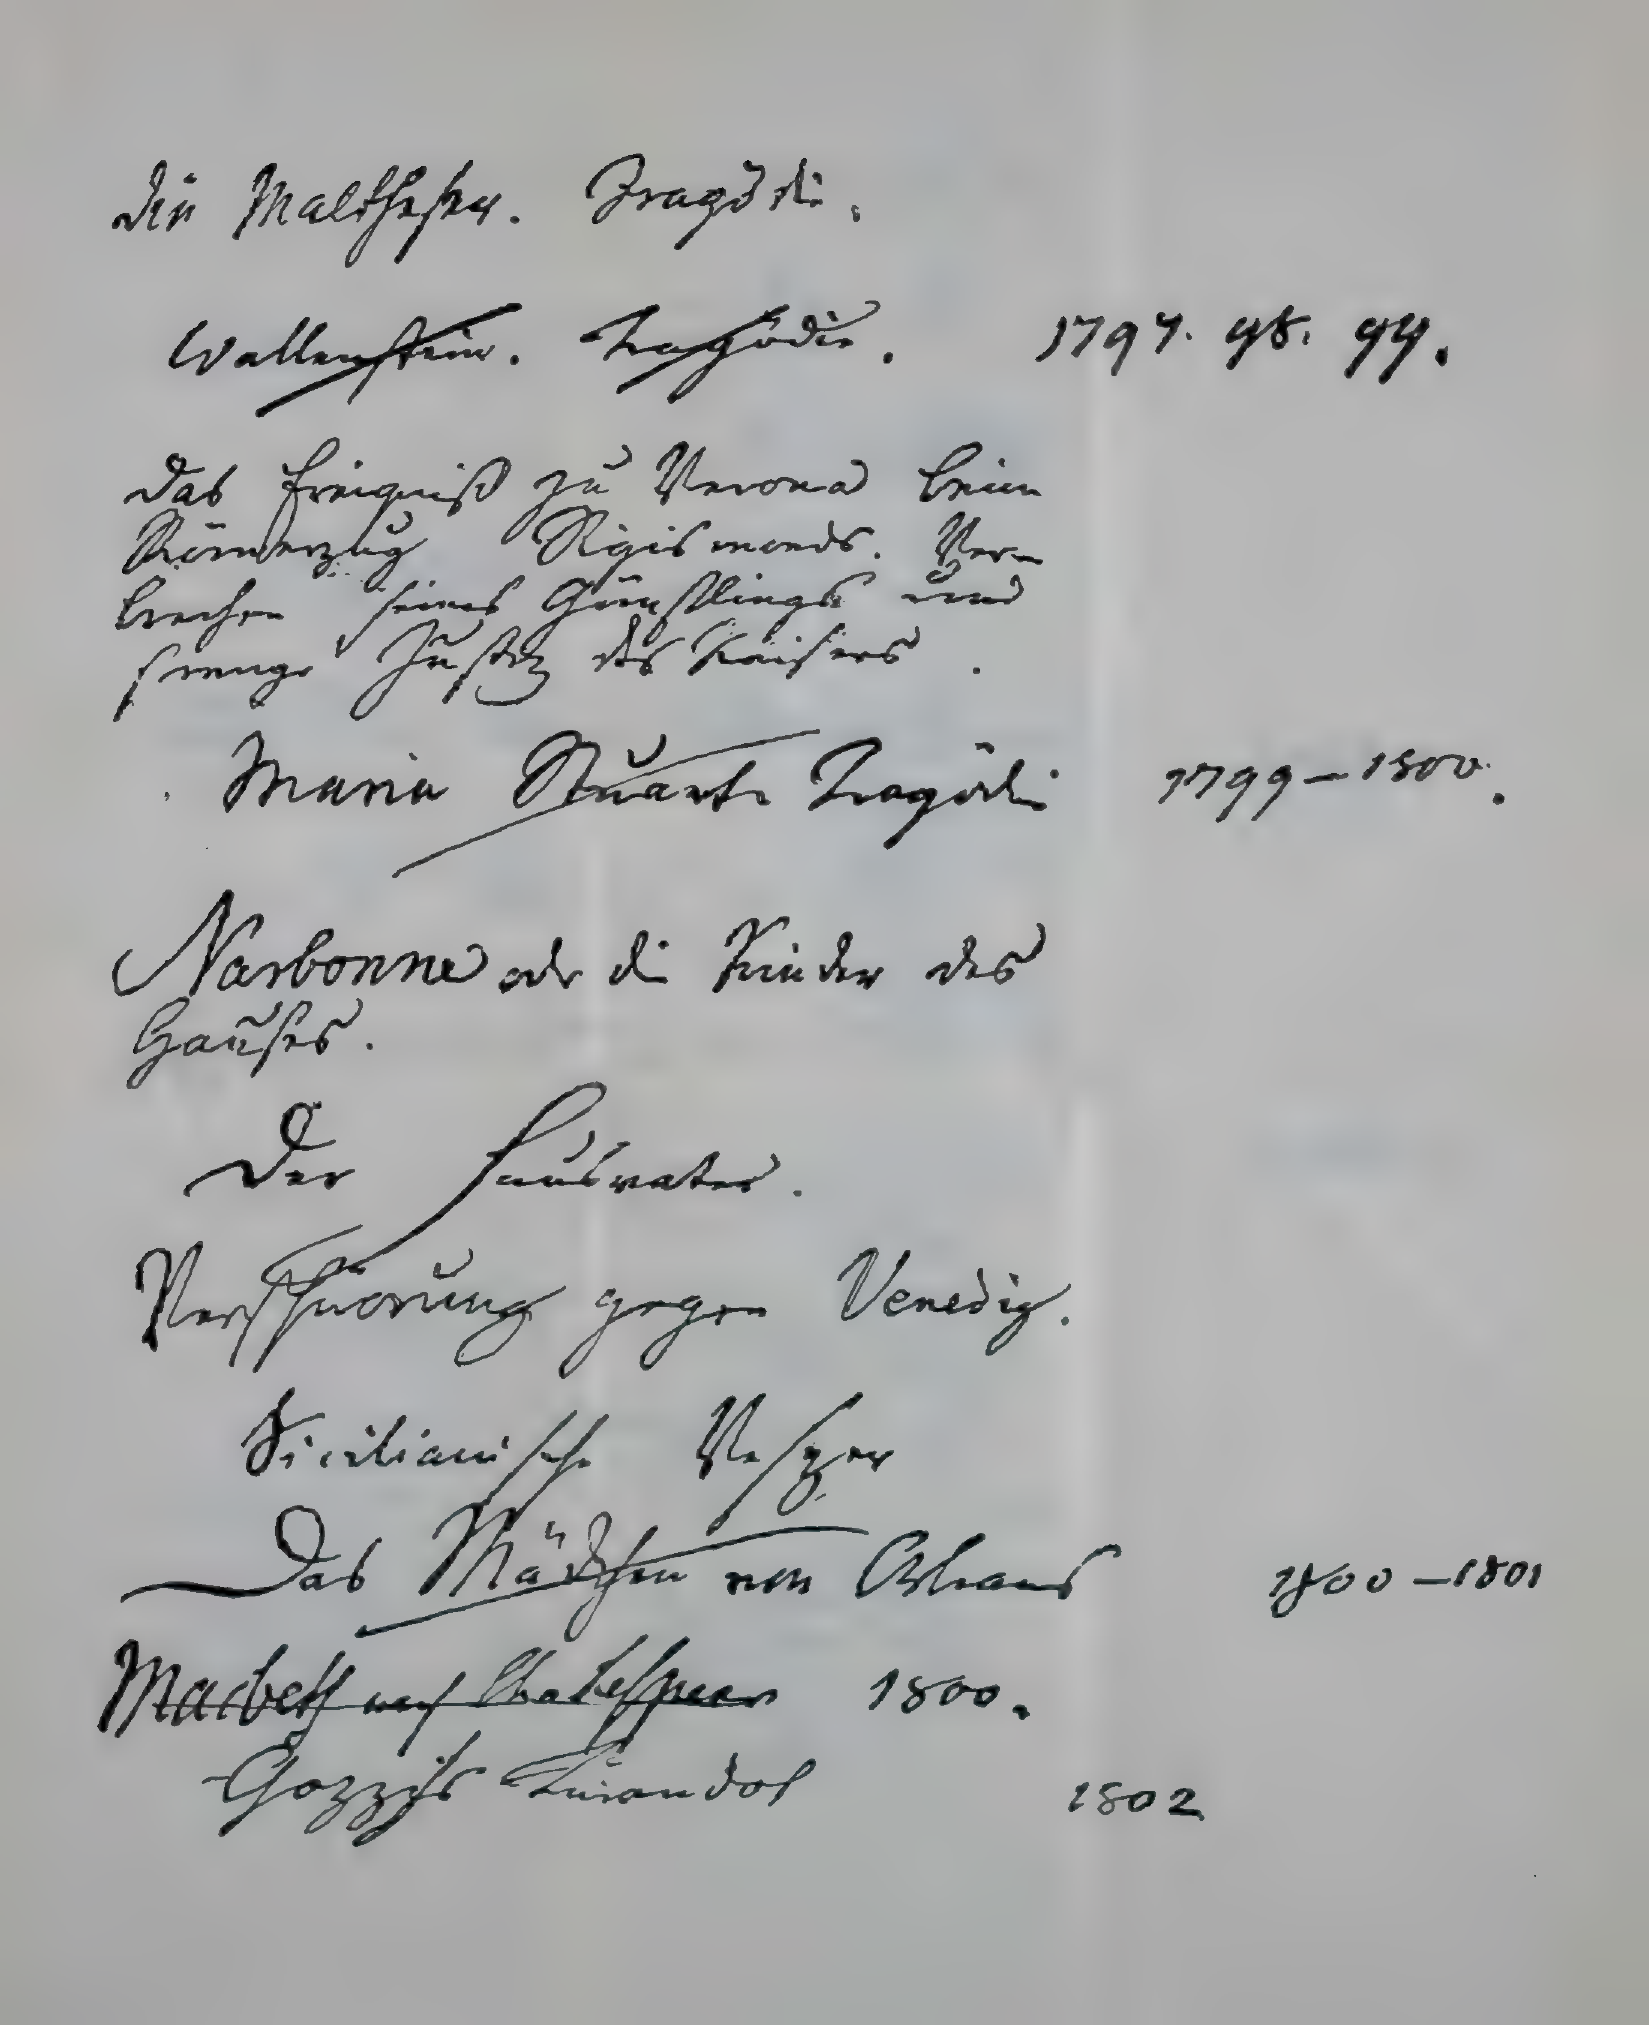 Die Malthefer. Tragödie.
Wallenstein. Tragödie. 1797. 98. 99.
Das Ereigniß zu Verona beim
Römerzug Sigismonds. Ver-
brechen seines Günstlings und
strenge Justiz des Kaisers.
Maria Stuart. Tragödie 1799–1800.
Narbonne oder die Kinder des
Hauses.
Der Hausvater.
Verschwörung gegen Venedig.
Sicilianische Vesper
Das Mädchen von Orleans 1800–1801
Macbeth nach Shakespear 1800.
Gozzi's Turandot 1802